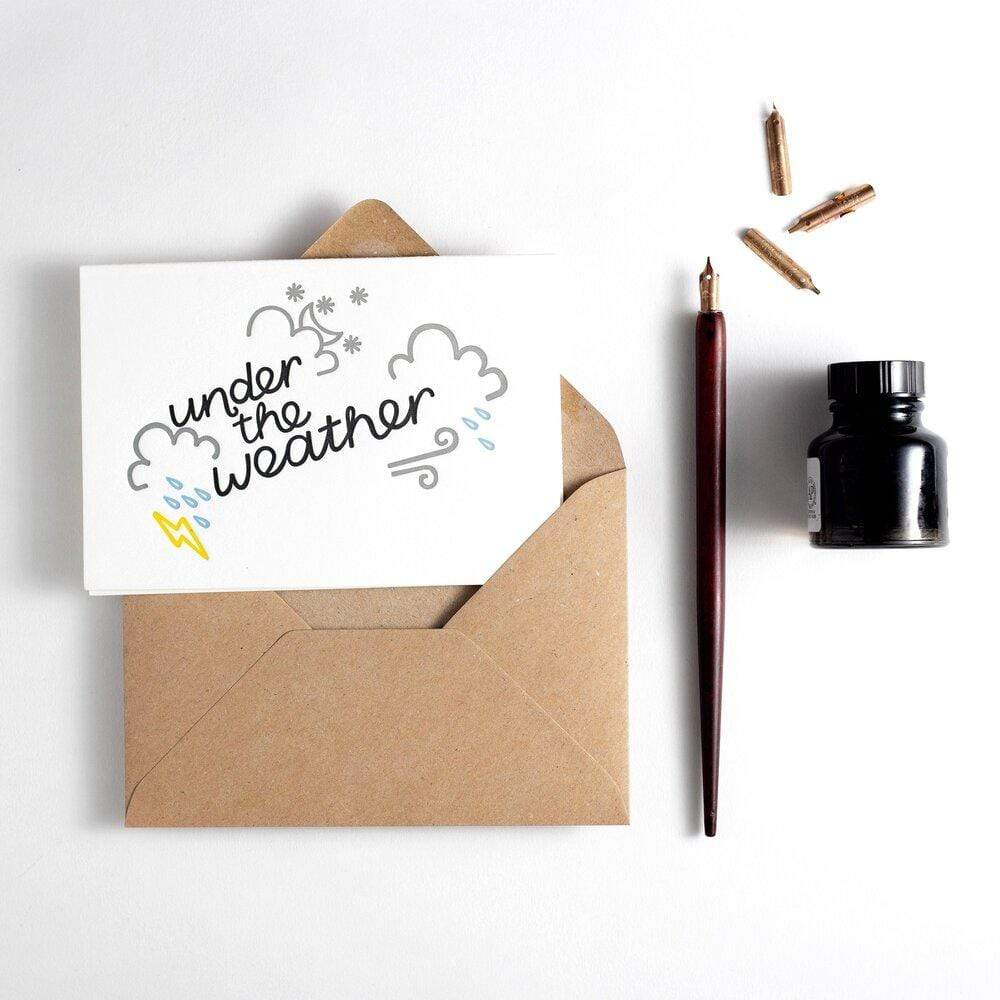 under
the
weather